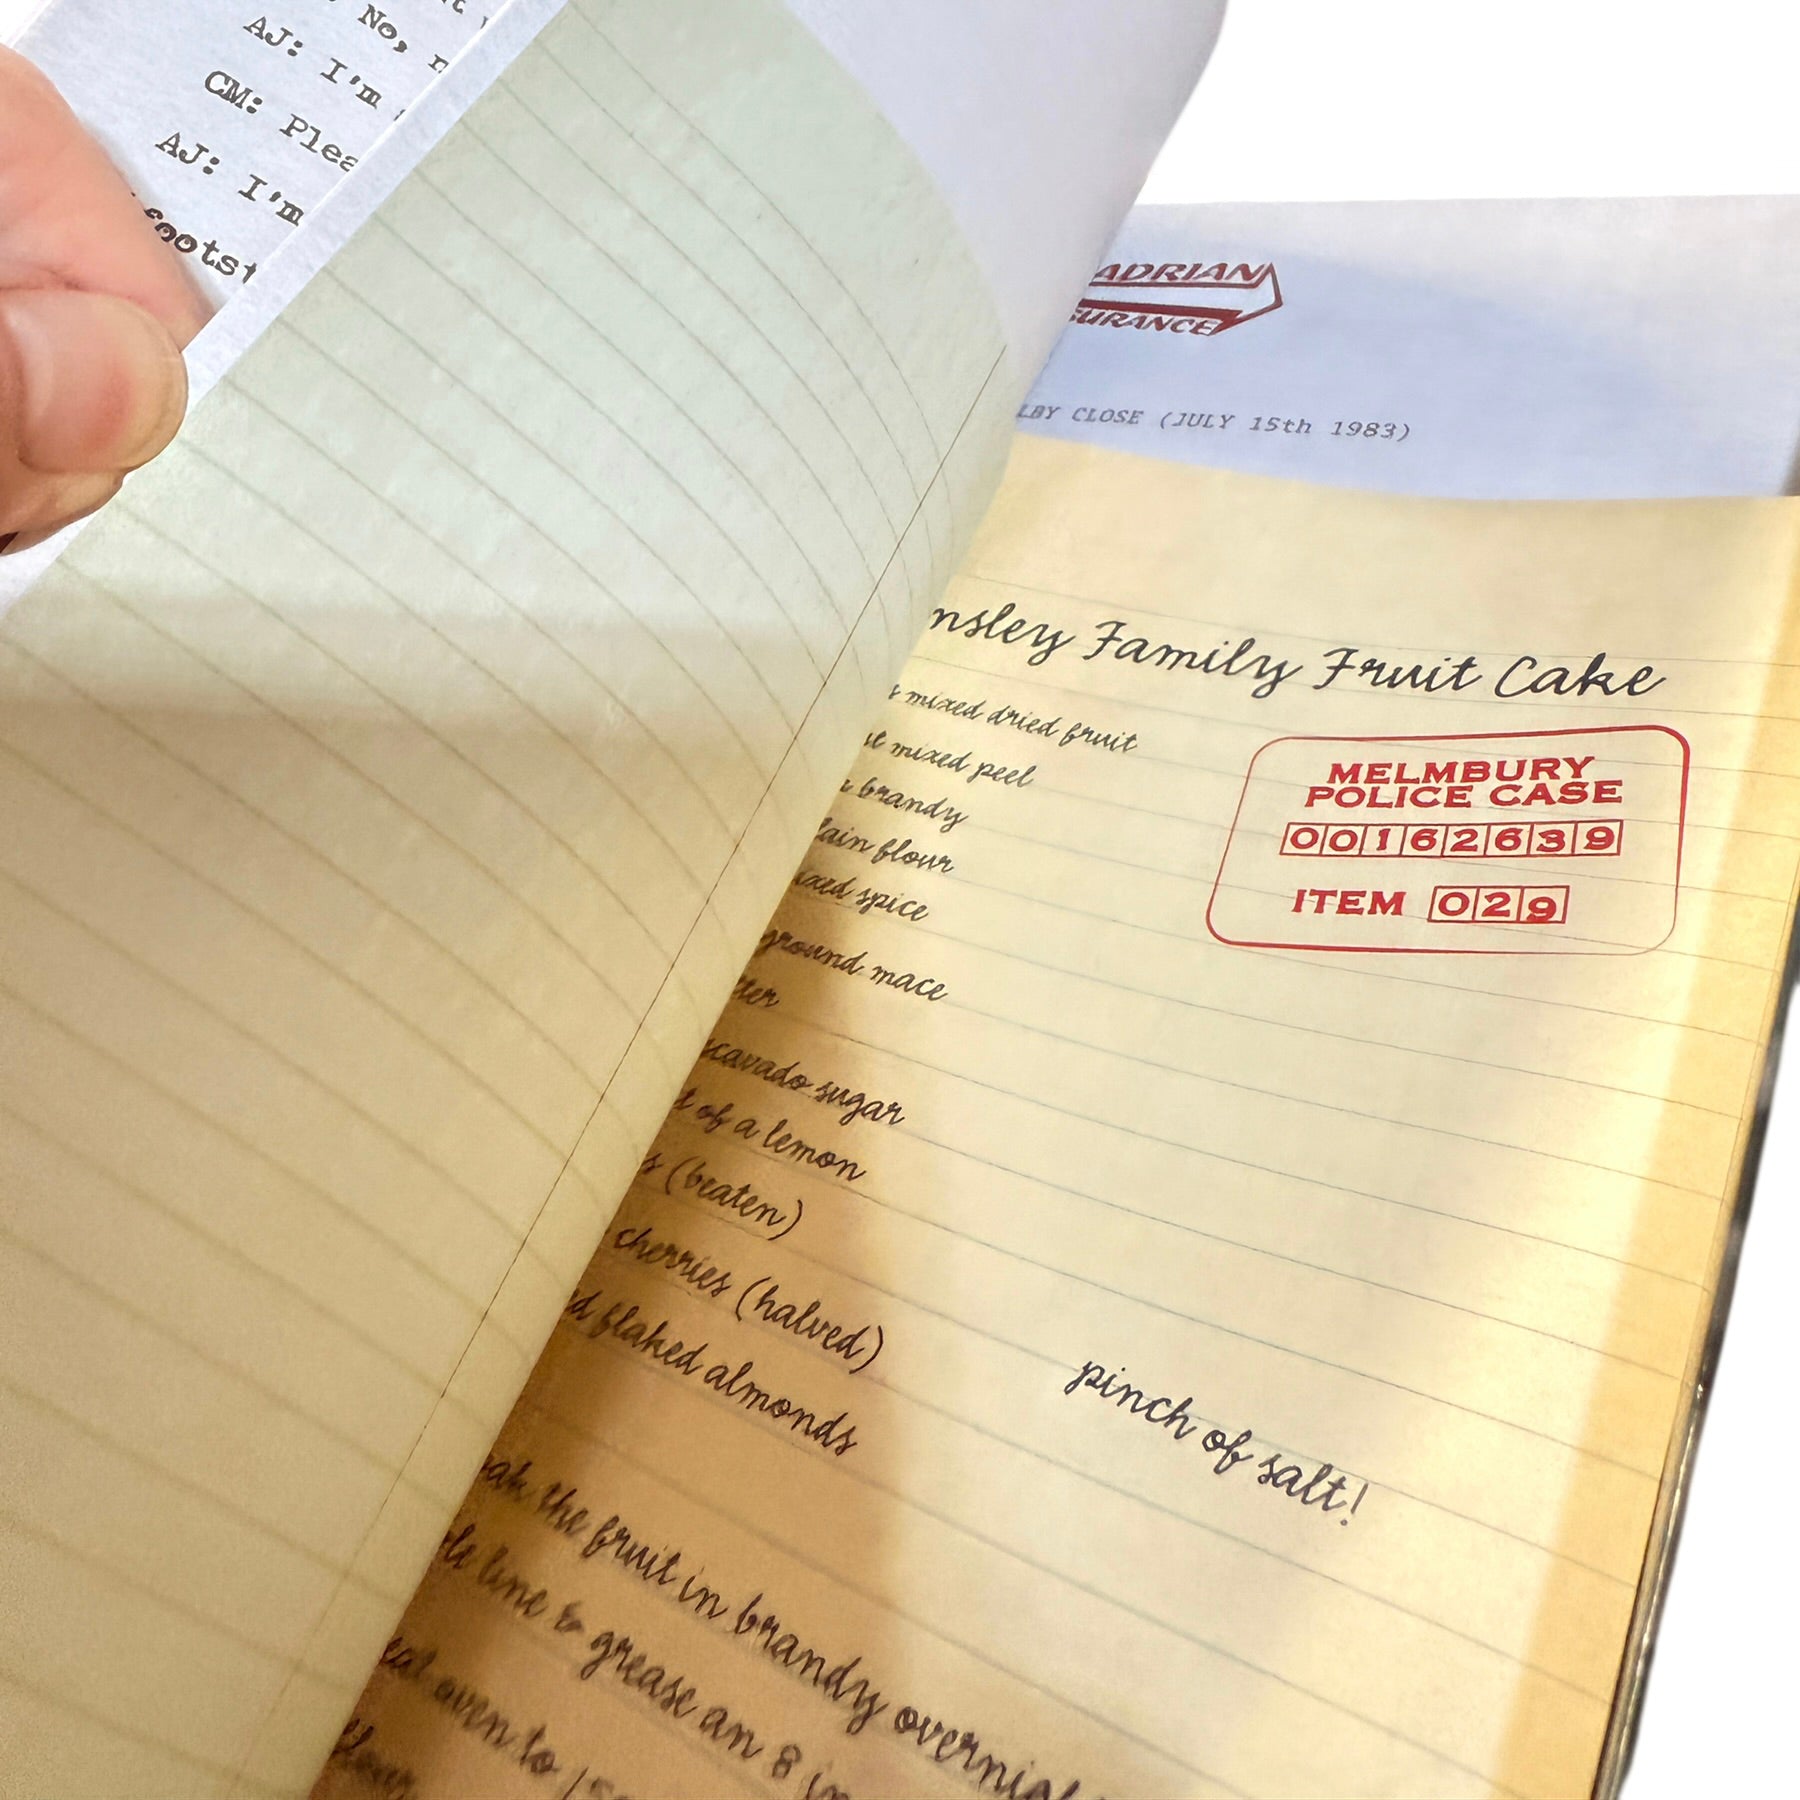 No,
AJ: I'm
CM: Plea
AJ: I'm
foots
ADRIAN
SURANCE
LBY CLOSE (JULY 15th 1983)
nsley Family Fruit Cake
mixed dried fruit
mixed peel
brandy
lain flour
ixed spice
ground mace
tter
scavado sugar
of a lemon
s (beaten)
cherries (halved)
ed flaked almonds
pinch of salt!
MELMBURY
POLICE CASE
00162639
ITEM 029
oak the fruit in brandy overnight
line & grease an 8 in
eat oven to 150
flour